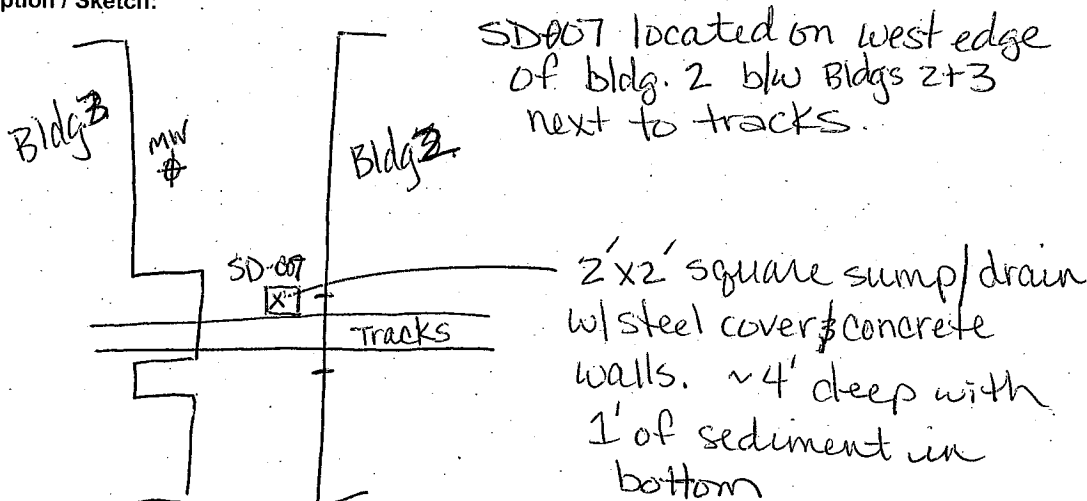 ption / Sketch:
SD007 located on west edge
of bldg. 2 b/w Bldgs 2+3
next to tracks.
Bldg 3
MW
Bldg 2
SD-007
Tracks
2'x2' square sump/drain
w/ steel cover & concrete
walls. ~4' deep with
1' of sediment in
bottom